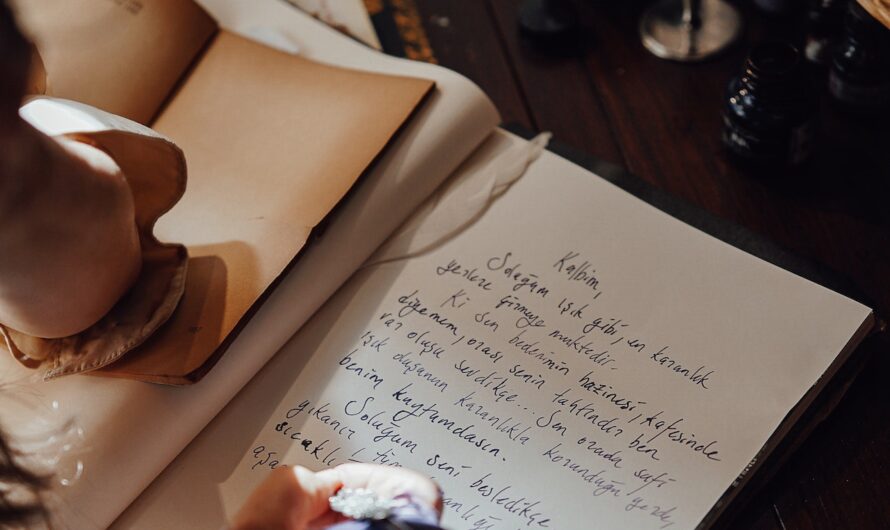 Kalbim,
Soluğum ışık gibi, en karanlık
yerlere girmeye muktedir.
Ki sen bedenimin hazinesi, kafesinde
diyemem, orası senin tahtındır ben
var oluşu sevdikçe... Sen orada safi
ışık duşunun karanlıkla korunduğu yerde,
benim kuytumdasın.
Soluğum seni besledikçe
yıkanır
sıcaklı tüm